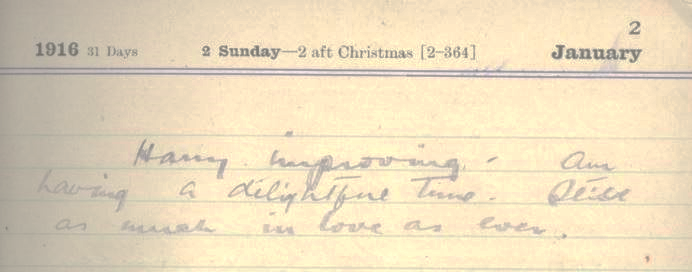 2
1916 31 Days 2 Sunday—2 aft Christmas [2-364] January
Harry improving - Am
having a delightful time. Still
as much in love as ever.